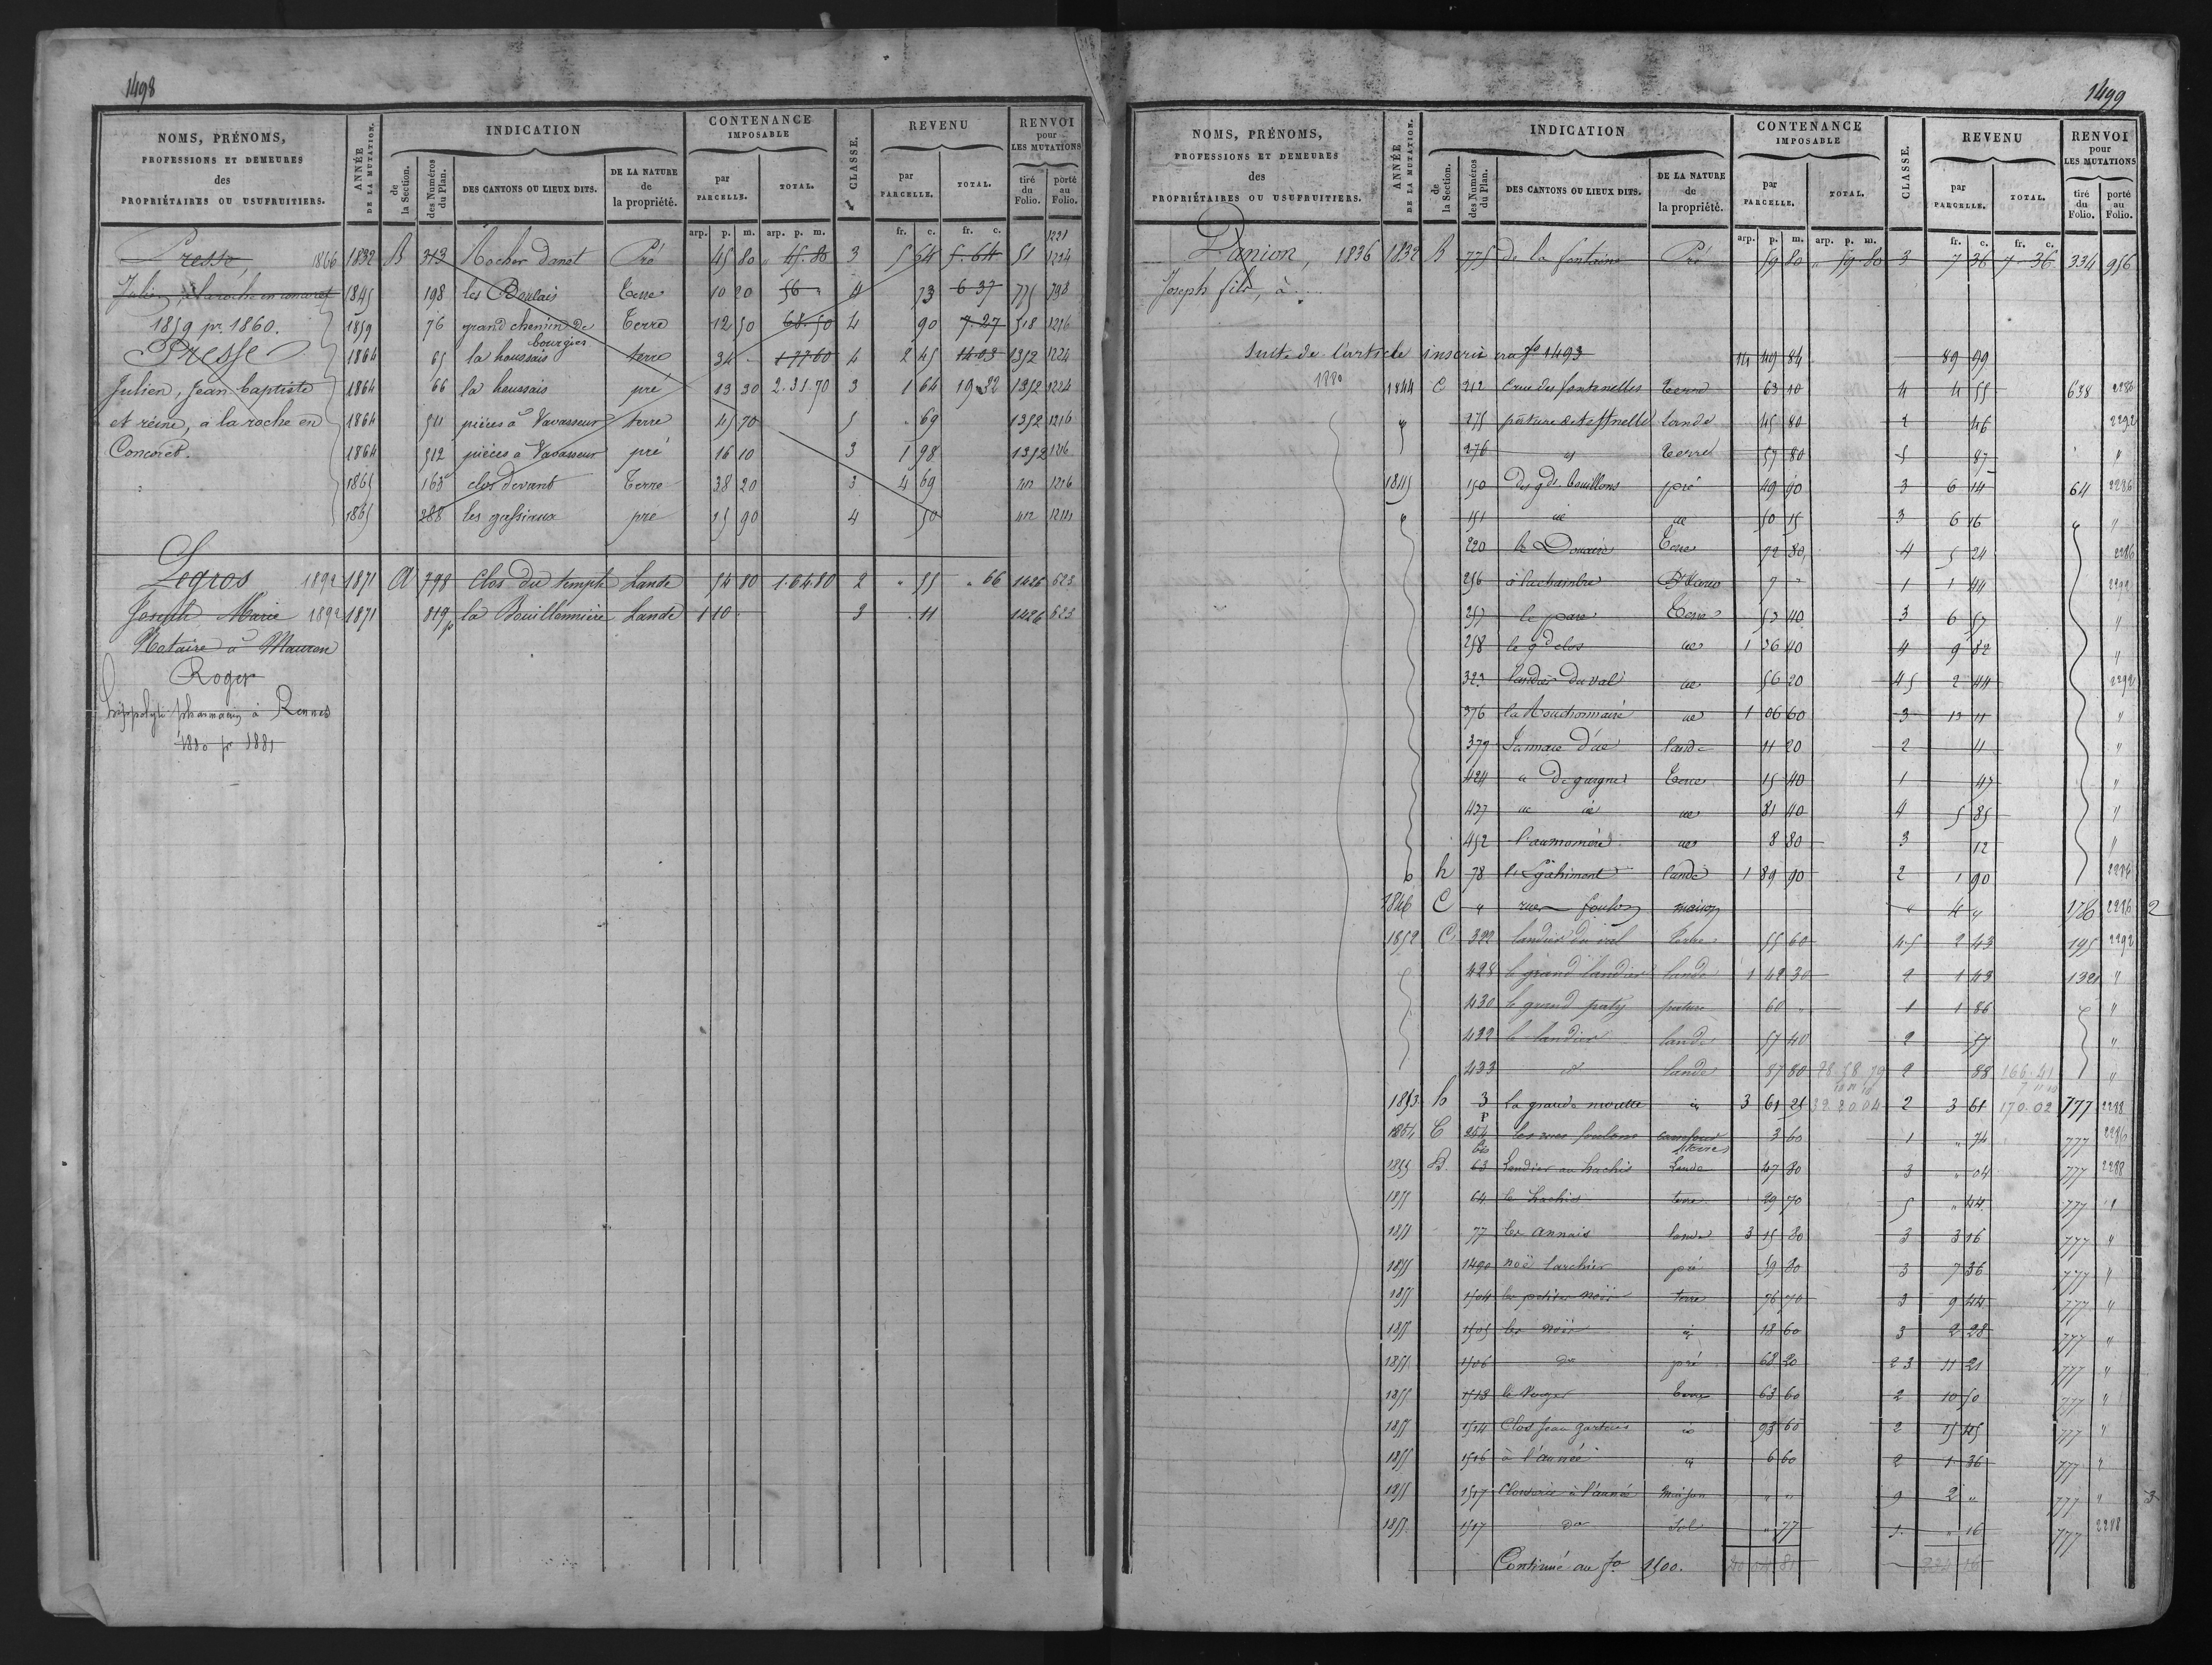 1498
NOMS, PRÉNOMS, PROFESSIONS ET DEMEURES des PROPRIÉTAIRES OU USUFRUITIERS.
ANNÉE DE LA MUTATION.
INDICATION
de la Section.
des Numéros du Plan.
DES CANTONS OU LIEUX DITS.
DE LA NATURE de la propriété.
CONTENANCE IMPOSABLE
par PARCELLE.
TOTAL.
CLASSE.
REVENU
par PARCELLE.
TOTAL.
RENVOI pour LES MUTATIONS
tiré du Folio.
porté au Folio.
arp. p. m. arp. p. m. fr. c. fr. c. 1221
Presse, 1866 1832 B 313 Rocher danet Pré 45 80 " 45.80 3 5 64 5.64 51 1224
Julien, à la roche en concoret 1845 198 les Boulais Terre 10 20 56 " 4 73 6 37 775 798
1859 pr 1860. 1859 76 grand chemin de bourgies Terre 12 50 68.50 4 90 7.27 518 1216
Presse 1864 65 la houssais terre 34 - 1 77 60 4 2 45 14 03 1352 1224
Julien, Jean baptiste 1864 66 la houssais pré 13 30 2.31 70 3 1 64 19 32 1352 1224
et reine, à la roche en 1864 511 pièces à Vavasseur terre 45 70 5 69 1352 1216
Concoret. 1864 512 pièces à Vavasseur pré 16 10 3 1 98 1352 1216
1865 163 clos devant Terre 38 20 3 4 69 412 1216
1865 288 les gassiaux pré 25 90 4 50 412
Legros 1892 1871 A 798 Clos du temple Lande 54 80 1.64 80 2 " 55 " 66 1426 623
Joseph Marie 1892 1871 819 p la Bouillonnière Lande 1 10 3 11 1426 623
Notaire à Mauron
Roger
hippolyte pharmacien à Rennes
1880 pr 1881
1499
NOMS, PRÉNOMS, PROFESSIONS ET DEMEURES des PROPRIÉTAIRES OU USUFRUITIERS.
ANNÉE DE LA MUTATION.
INDICATION
de la Section.
des Numéros du Plan.
DES CANTONS OU LIEUX DITS.
DE LA NATURE de la propriété.
CONTENANCE IMPOSABLE
par PARCELLE.
TOTAL.
CLASSE.
REVENU
par PARCELLE.
TOTAL.
RENVOI pour LES MUTATIONS
tiré du Folio.
porté au Folio.
arp. p. m. arp. p. m. fr. c. fr. c.
Danion, 1836 1832 B 775 de la fontaine Pré 59 80 " 59 80 3 7 36 7.36 334 956
Joseph fils, à
Suite de l'article inscrit au fo 1493 14 49 84 89 99
1880 1844 C 212 Terre 63 10 4 4 55 638 2286
275 lande 45 80 2 46 2292
276 Terre 57 80 5 87 "
1845 150 Des gds bouillons pré 49 90 3 6 14 64 2286
151 50 15 3 6 16 "
220 le Douaire Terre 72 80 4 5 24 2286
256 à la chambre 7 - 1 1 44 2292
257 le parc Terre 53 40 3 6 57 "
258 le gd clos 1 36 40 4 9 82 "
323 landier du val 56 20 4 5 2 44 2292
376 1 06 60 3 13 11 "
377 lande 11 20 2 11 "
424 Terre 15 40 1 47 "
437 81 40 4 5 85 "
452 l'aumonerie 8 80 3 12 "
h 78 lande 1 89 90 2 1 90 2284
1846 C " rue foulon maison " 4 " 176 2286 2
1852 C 322 landier du val Terre 55 60 4 5 2 43 195 2292
428 le grand landier lande 1 42 30 2 1 43 1321 "
430 le grand paty pature 60 " 1 1 86 "
432 le landier lande 57 40 2 57 "
433 lande 87 80 28 58 79 2 88 166.41 "
1853 h 3 la grande 3 61 25 32 20 04 2 3 61 170.02 777 2288
1854 C 254 p les rues foulons 3 60 1 " 74 777 2286
1855 B. 63 bis Landier au hachis Lande 47 80 3 " 04 777 2288
1855 64 le hachis terre 29 70 5 " 44 777 "
1855 77 les annais lande 3 15 80 3 3 16 777 "
1855 1490 noë larchier pré 59 80 3 7 36 777 "
1855 1504 les petites noës terre 76 70 3 9 44 777 "
1855 1505 les noës 18 60 3 2 28 777 "
1855 1506 do pré 68 20 2 3 11 21 777 "
1855 1513 le verger Terre 63 60 2 10 50 777 "
1855 1514 Clos Jean 93 60 2 15 45 777 "
1855 1516 à l'année 6 60 2 1 36 777 "
1855 1517 Closerie à l'année Maison " " 9 2 " 777 " 3
1855 1517 do Sol " 77 1 " 16 777 2288
Continué au fo 1500. 234 16